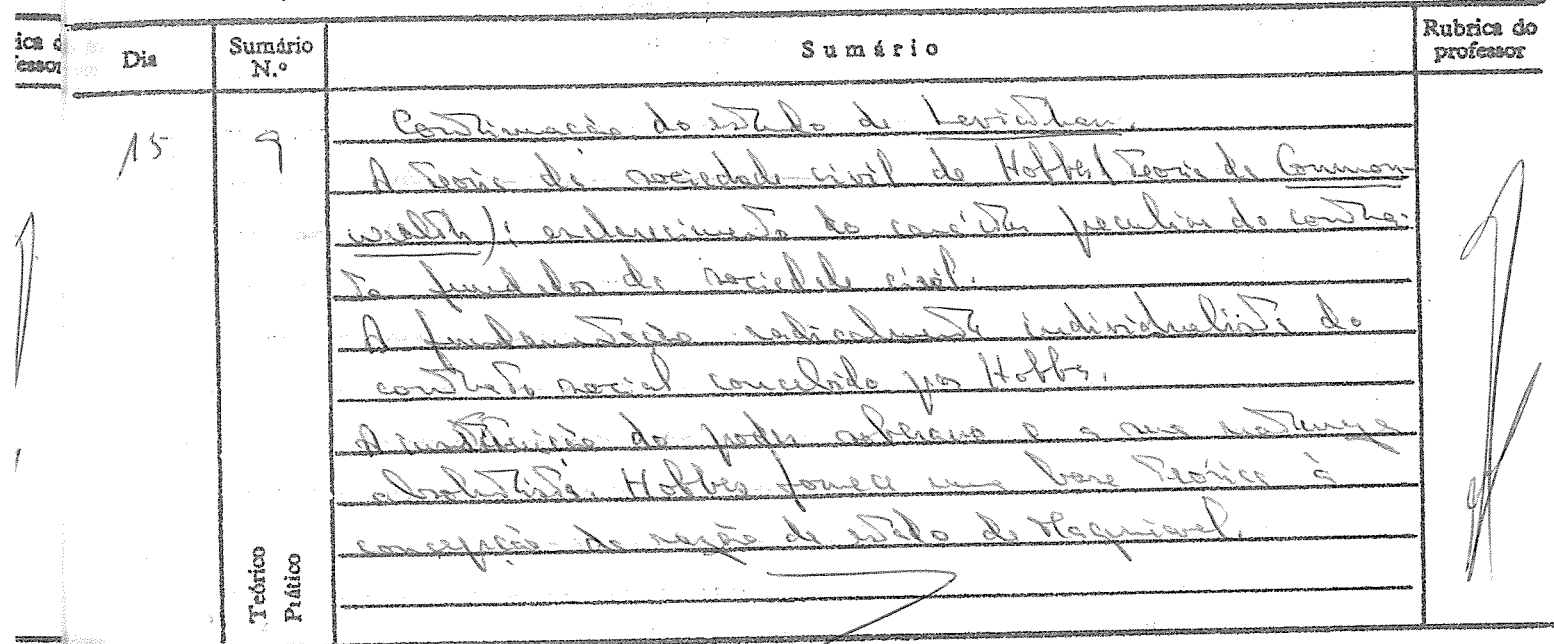 ica d
fessor
Dia
Sumário
N.º
Sumário
Rubrica do
professor
15
9
Continuação do estudo de Leviathan.
A teoria da sociedade civil de Hobbes (teoria da Common-
wealth): esclarecimento do carácter peculiar do contra-
to fundador da sociedade civil.
A fundamentação radicalmente individualista do
contrato social concebido por Hobbes.
A instituição do poder soberano e a sua natureza
absolutista. Hobbes fornece uma base teórica à
concepção da razão de estado de Maquiavel.
Teórico
Prático